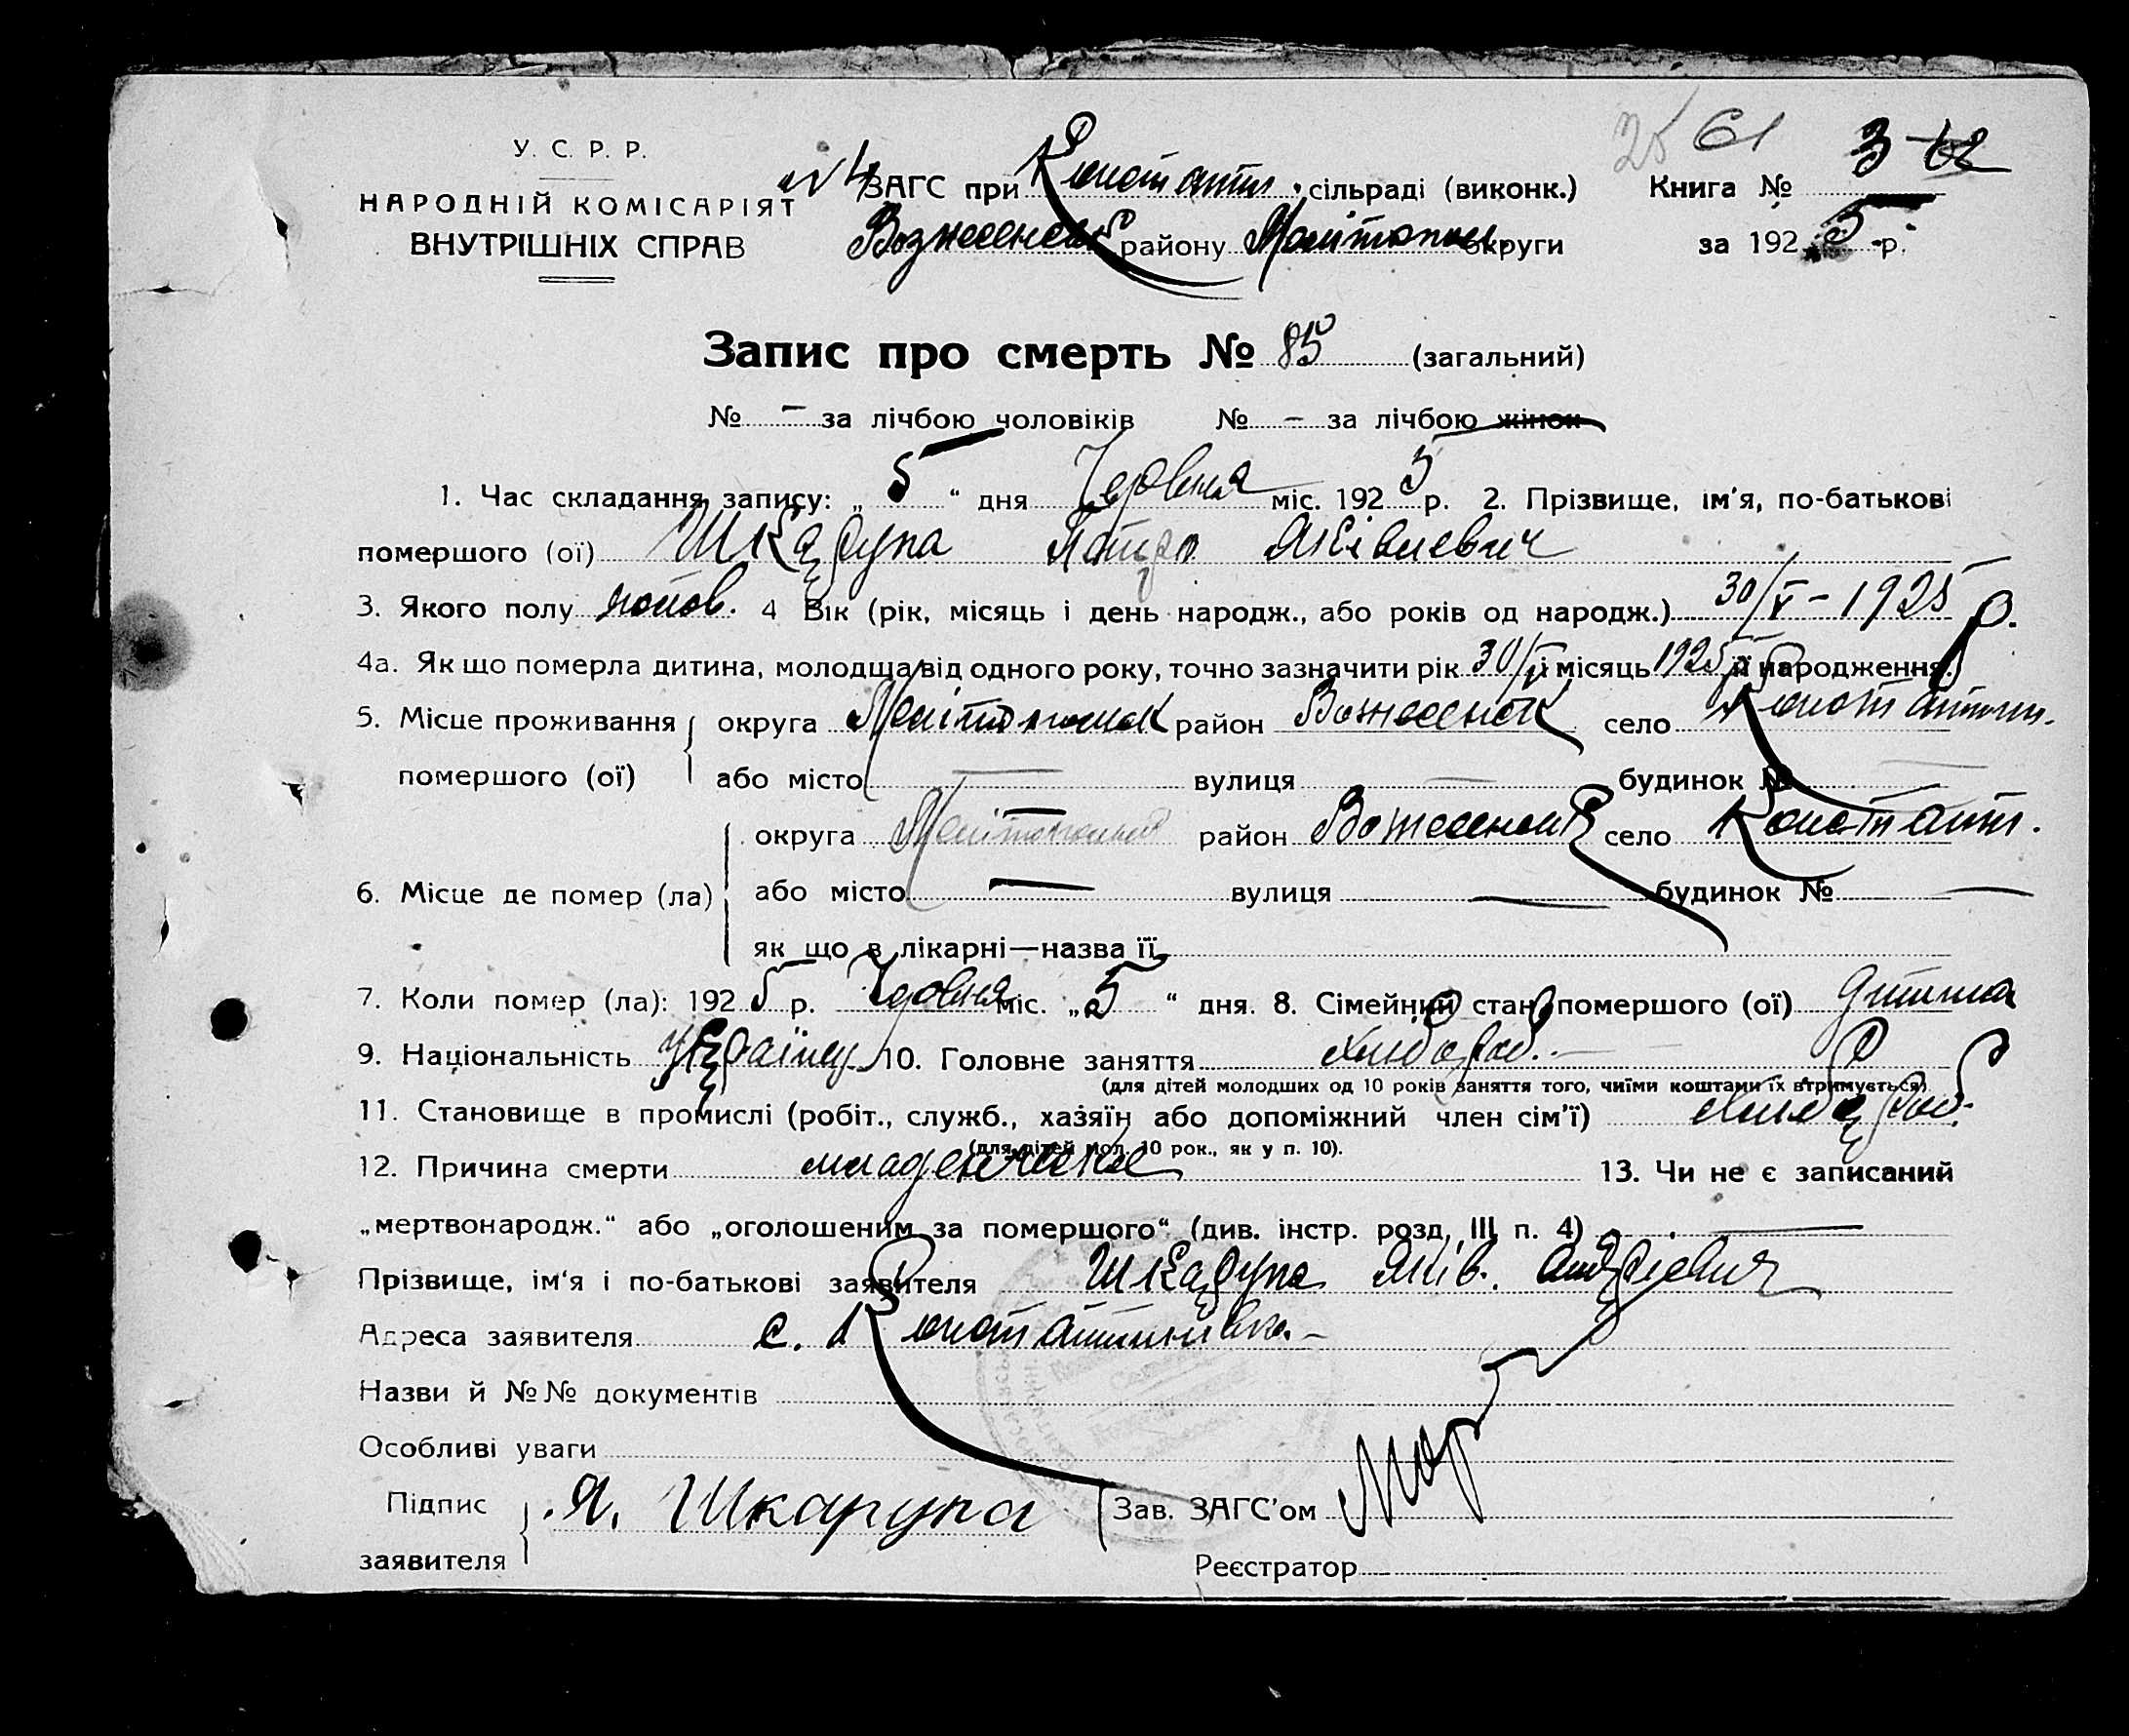 25 61 3-62
У. С. Р. Р.
НАРОДНІЙ КОМІСАРІЯТ
ВНУТРІШНІХ СПРАВ
ЗАГС при Констант. сільраді (виконк.) Книга №
Вознесенськ району Мелітопол. округи за 1925 р.
Запис про смерть № 85 (загальний)
№ – за лічбою чоловіків № – за лічбою жінок
1. Час складання запису: „5“ дня Червня міс. 1925 р. 2. Прізвище, ім'я, по-батькові
помершого (ої) Шкарупа Петро Яківлевич
3. Якого полу 4 Вік (рік, місяць і день народж., або років од народж.) 30/V – 1925 р.
4а. Як що померла дитина, молодща від одного року, точно зазначити рік 30/V і місяць 1925 р її народження.
5. Місце проживання округа Мелітопольск район Вознесенськ село Константин.
помершого (ої) або місто — вулиця — будинок № —
округа Мелітопольск район Вознесенськ село Констант.
6. Місце де помер (ла) або місто — вулиця — будинок № —
як що в лікарні—назва її
7. Коли помер (ла): 1925 р. Червня міс. „5“ дня. 8. Сімейний стан помершого (ої) дитина
9. Національність Українец 10. Головне заняття хлібороб. —
(для дітей молодших од 10 років заняття того, чиїми коштами їх втримується)
11. Становище в промислі (робіт., служб., хазяїн або допоміжний член сім'ї) хлібороб.
(для дітей мол. 10 рок., як у п. 10).
12. Причина смерти младенческая 13. Чи не є записаний
„мертвонародж.“ або „оголошеним за помершого“ (див. інстр. розд. III п. 4) —
Прізвище, ім'я і по-батькові заявителя Шкарупа Яків. Андрієвич
Адреса заявителя с. Константинівка. –
Назви й №№ документів
Особливі уваги
Підпис Я. Шкарупа Зав. ЗАГС'ом
заявителя Реєстратор